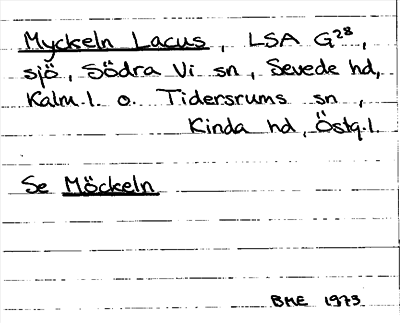 Myckeln Lacus, LSA G28,
sjö, Södra Vi sn, Sevede hd,
Kalm.l. o. Tidersrums sn,
Kinda hd, Östg.l.
Se Möckeln
BME 1973